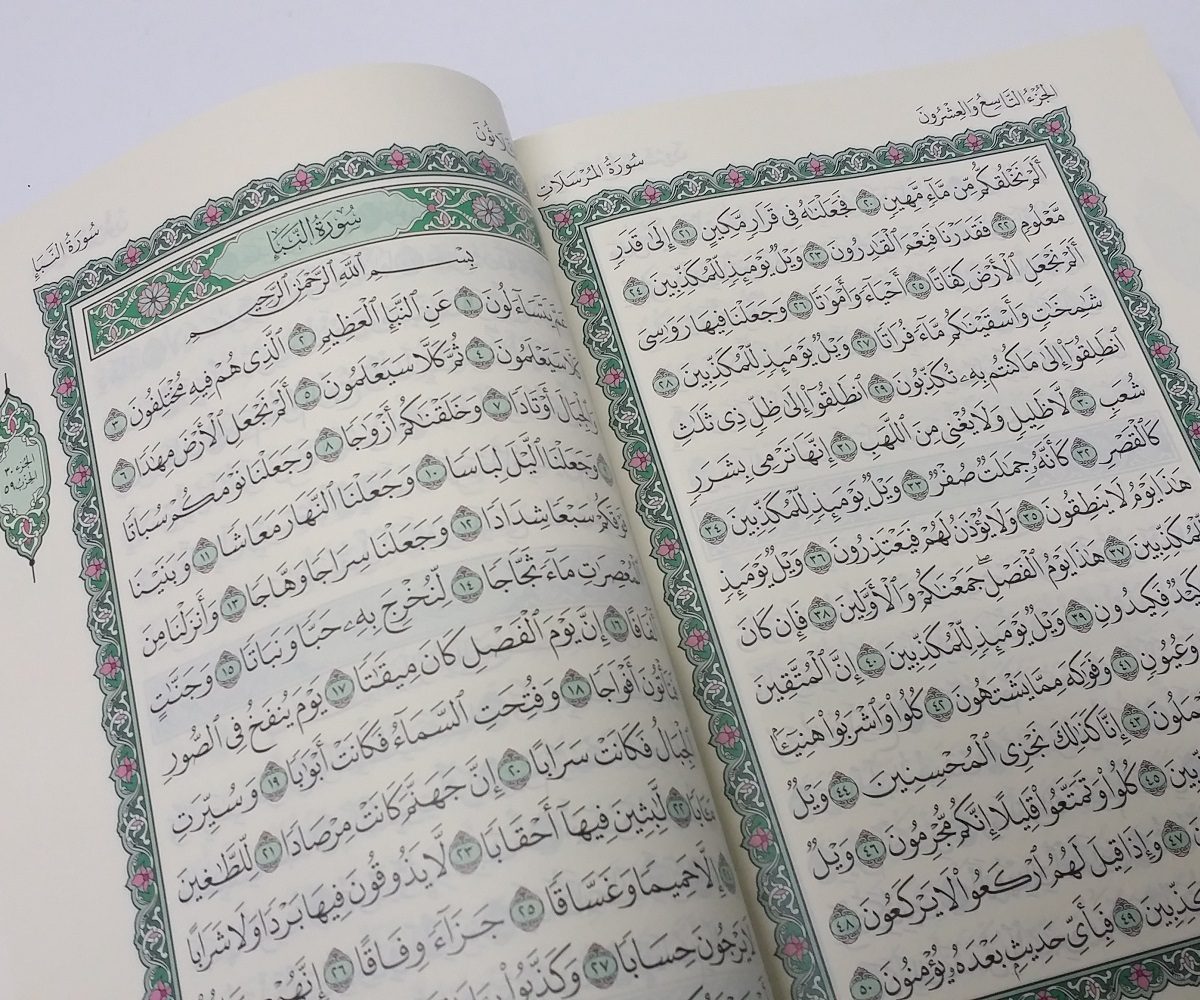 الجُزْءُ التَّاسِعُ وَالعِشْرُونَ
سُورَةُ المُرْسَلَات
أَلَمْ نَخْلُقكُّم مِّن مَّآءٍ مَّهِينٍ ٢٠ فَجَعَلْنَٰهُ فِى قَرَارٍ مَّكِينٍ ٢١ إِلَىٰ قَدَرٍ
مَّعْلُومٍ ٢٢ فَقَدَرْنَا فَنِعْمَ ٱلْقَٰدِرُونَ ٢٣ وَيْلٌ يَوْمَئِذٍ لِّلْمُكَذِّبِينَ ٢٤
أَلَمْ نَجْعَلِ ٱلْأَرْضَ كِفَاتًا ٢٥ أَحْيَآءً وَأَمْوَٰتًا ٢٦ وَجَعَلْنَا فِيهَا رَوَٰسِىَ
شَٰمِخَٰتٍ وَأَسْقَيْنَٰكُم مَّآءً فُرَاتًا ٢٧ وَيْلٌ يَوْمَئِذٍ لِّلْمُكَذِّبِينَ ٢٨
ٱنطَلِقُوٓا۟ إِلَىٰ مَا كُنتُم بِهِۦ تُكَذِّبُونَ ٢٩ ٱنطَلِقُوٓا۟ إِلَىٰ ظِلٍّ ذِى ثَلَٰثِ
شُعَبٍ ٣٠ لَّا ظَلِيلٍ وَلَا يُغْنِى مِنَ ٱللَّهَبِ ٣١ إِنَّهَا تَرْمِى بِشَرَرٍ
كَٱلْقَصْرِ ٣٢ كَأَنَّهُۥ جِمَٰلَتٌ صُفْرٌ ٣٣ وَيْلٌ يَوْمَئِذٍ لِّلْمُكَذِّبِينَ ٣٤
هَٰذَا يَوْمُ لَا يَنطِقُونَ ٣٥ وَلَا يُؤْذَنُ لَهُمْ فَيَعْتَذِرُونَ ٣٦ وَيْلٌ يَوْمَئِذٍ
٣٧ هَٰذَا يَوْمُ ٱلْفَصْلِ ۖ جَمَعْنَٰكُمْ وَٱلْأَوَّلِينَ ٣٨ فَإِن كَانَ
فَكِيدُونِ ٣٩ وَيْلٌ يَوْمَئِذٍ لِّلْمُكَذِّبِينَ ٤٠ إِنَّ ٱلْمُتَّقِينَ
وَعُيُونٍ ٤١ وَفَوَٰكِهَ مِمَّا يَشْتَهُونَ ٤٢ كُلُوا۟ وَٱشْرَبُوا۟ هَنِيٓـًٔۢا
٤٣ إِنَّا كَذَٰلِكَ نَجْزِى ٱلْمُحْسِنِينَ ٤٤ وَيْلٌ
٤٥ كُلُوا۟ وَتَمَتَّعُوا۟ قَلِيلًا إِنَّكُم مُّجْرِمُونَ ٤٦ وَيْلٌ
٤٧ وَإِذَا قِيلَ لَهُمُ ٱرْكَعُوا۟ لَا يَرْكَعُونَ ٤٨
٤٩ فَبِأَىِّ حَدِيثٍۭ بَعْدَهُۥ يُؤْمِنُونَ ٥٠
سُورَةُ النَّبَإِ
سُورَةُ النَّبَإِ
بِسْمِ ٱللَّهِ ٱلرَّحْمَٰنِ ٱلرَّحِيمِ
عَمَّ يَتَسَآءَلُونَ ١ عَنِ ٱلنَّبَإِ ٱلْعَظِيمِ ٢ ٱلَّذِى هُمْ فِيهِ مُخْتَلِفُونَ ٣
كَلَّا سَيَعْلَمُونَ ٤ ثُمَّ كَلَّا سَيَعْلَمُونَ ٥ أَلَمْ نَجْعَلِ ٱلْأَرْضَ مِهَٰدًا ٦
وَٱلْجِبَالَ أَوْتَادًا ٧ وَخَلَقْنَٰكُمْ أَزْوَٰجًا ٨ وَجَعَلْنَا نَوْمَكُمْ سُبَاتًا
وَجَعَلْنَا ٱلَّيْلَ لِبَاسًا ١٠ وَجَعَلْنَا ٱلنَّهَارَ مَعَاشًا ١١ وَبَنَيْنَا
فَوْقَكُمْ سَبْعًا شِدَادًا ١٢ وَجَعَلْنَا سِرَاجًا وَهَّاجًا ١٣ وَأَنزَلْنَا مِنَ
ٱلْمُعْصِرَٰتِ مَآءً ثَجَّاجًا ١٤ لِّنُخْرِجَ بِهِۦ حَبًّا وَنَبَاتًا ١٥ وَجَنَّٰتٍ
أَلْفَافًا ١٦ إِنَّ يَوْمَ ٱلْفَصْلِ كَانَ مِيقَٰتًا ١٧ يَوْمَ يُنفَخُ فِى ٱلصُّورِ
فَتَأْتُونَ أَفْوَاجًا ١٨ وَفُتِحَتِ ٱلسَّمَآءُ فَكَانَتْ أَبْوَٰبًا ١٩ وَسُيِّرَتِ
ٱلْجِبَالُ فَكَانَتْ سَرَابًا ٢٠ إِنَّ جَهَنَّمَ كَانَتْ مِرْصَادًا ٢١ لِّلطَّٰغِينَ
٢٢ لَّٰبِثِينَ فِيهَآ أَحْقَابًا ٢٣ لَّا يَذُوقُونَ فِيهَا بَرْدًا وَلَا شَرَابًا
إِلَّا حَمِيمًا وَغَسَّاقًا ٢٥ جَزَآءً وِفَاقًا ٢٦ إِنَّهُمْ
يَرْجُونَ حِسَابًا ٢٧ وَكَذَّبُوا۟
الجزء ٣٠
الحزب ٥٩